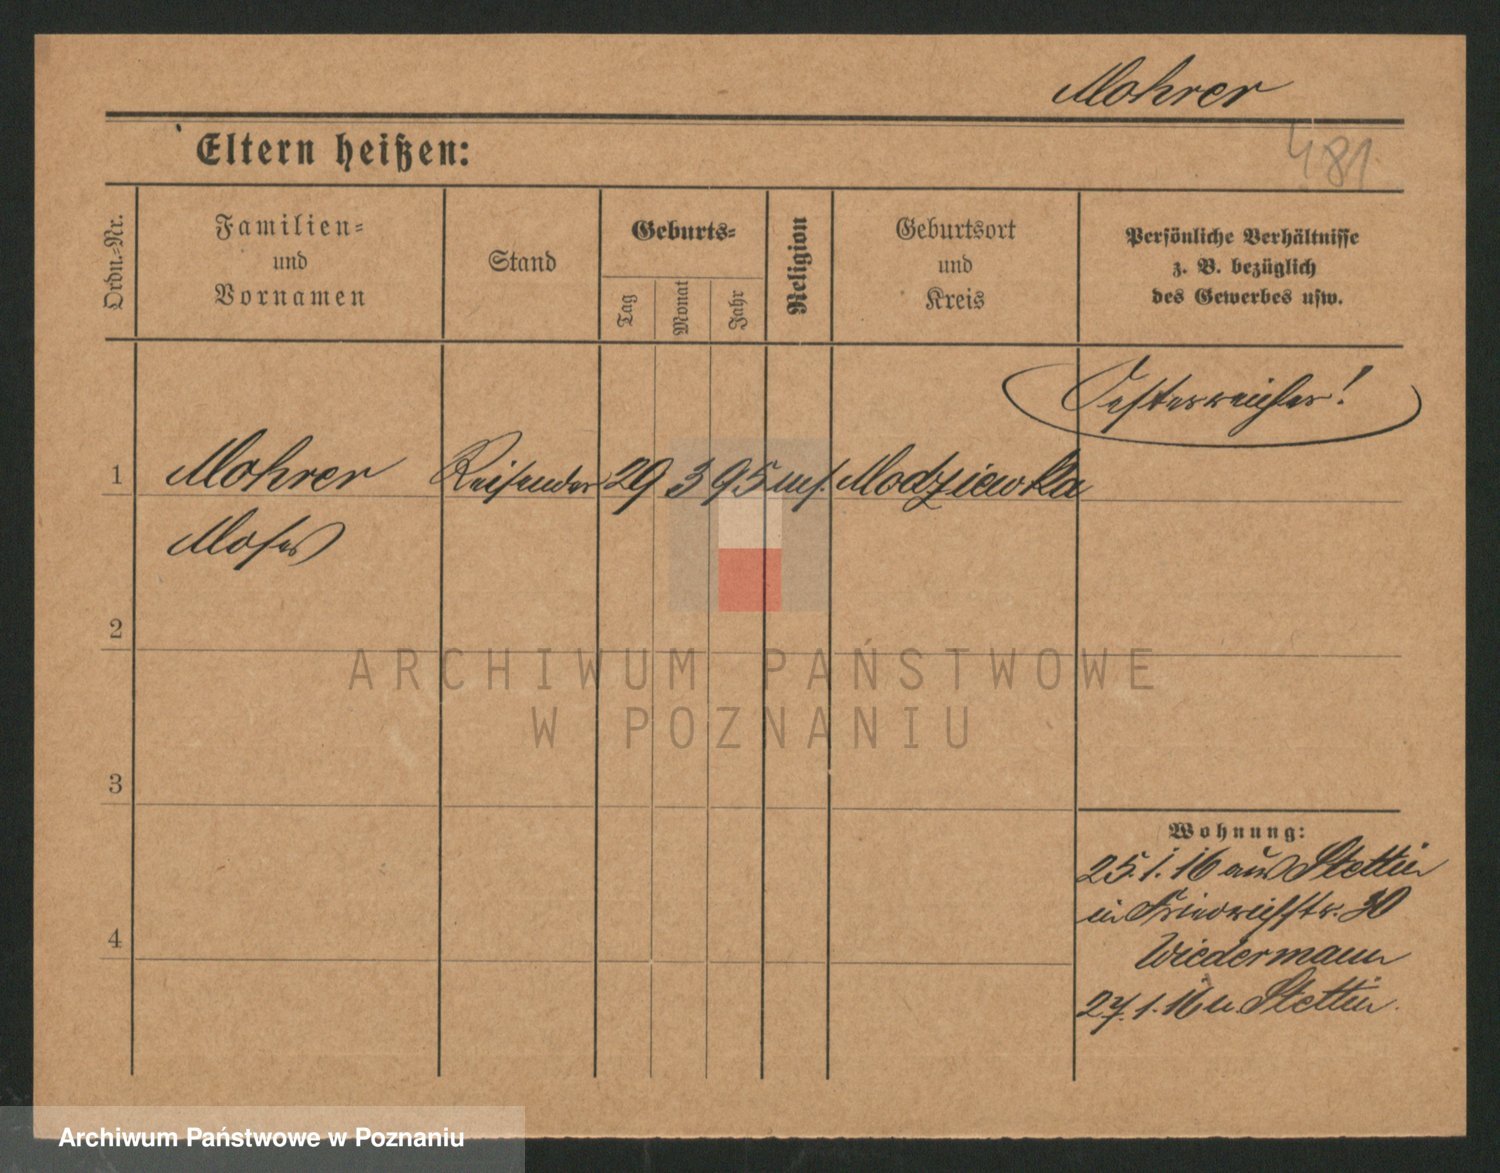 Mohrer
Eltern heißen:
481
Ordn.-Nr.
Familien-
und
Vornamen
Stand
Geburts-
Tag
Monat
Jahr
Religion
Geburtsort
und
Kreis
Persönliche Verhältnisse
z. B. bezüglich
des Gewerbes usw.
Oesterreicher!
1 Mohrer Reisender 29 3 95 mos. Modziewka
Moses
2
ARCHIWUM PAŃSTWOWE
W POZNANIU
3
Wohnung:
25.1.16 aus Stettin
in Friedrichstr. 30
4
Wiedermann
27.1.16 n. Stettin.
Archiwum Państwowe w Poznaniu